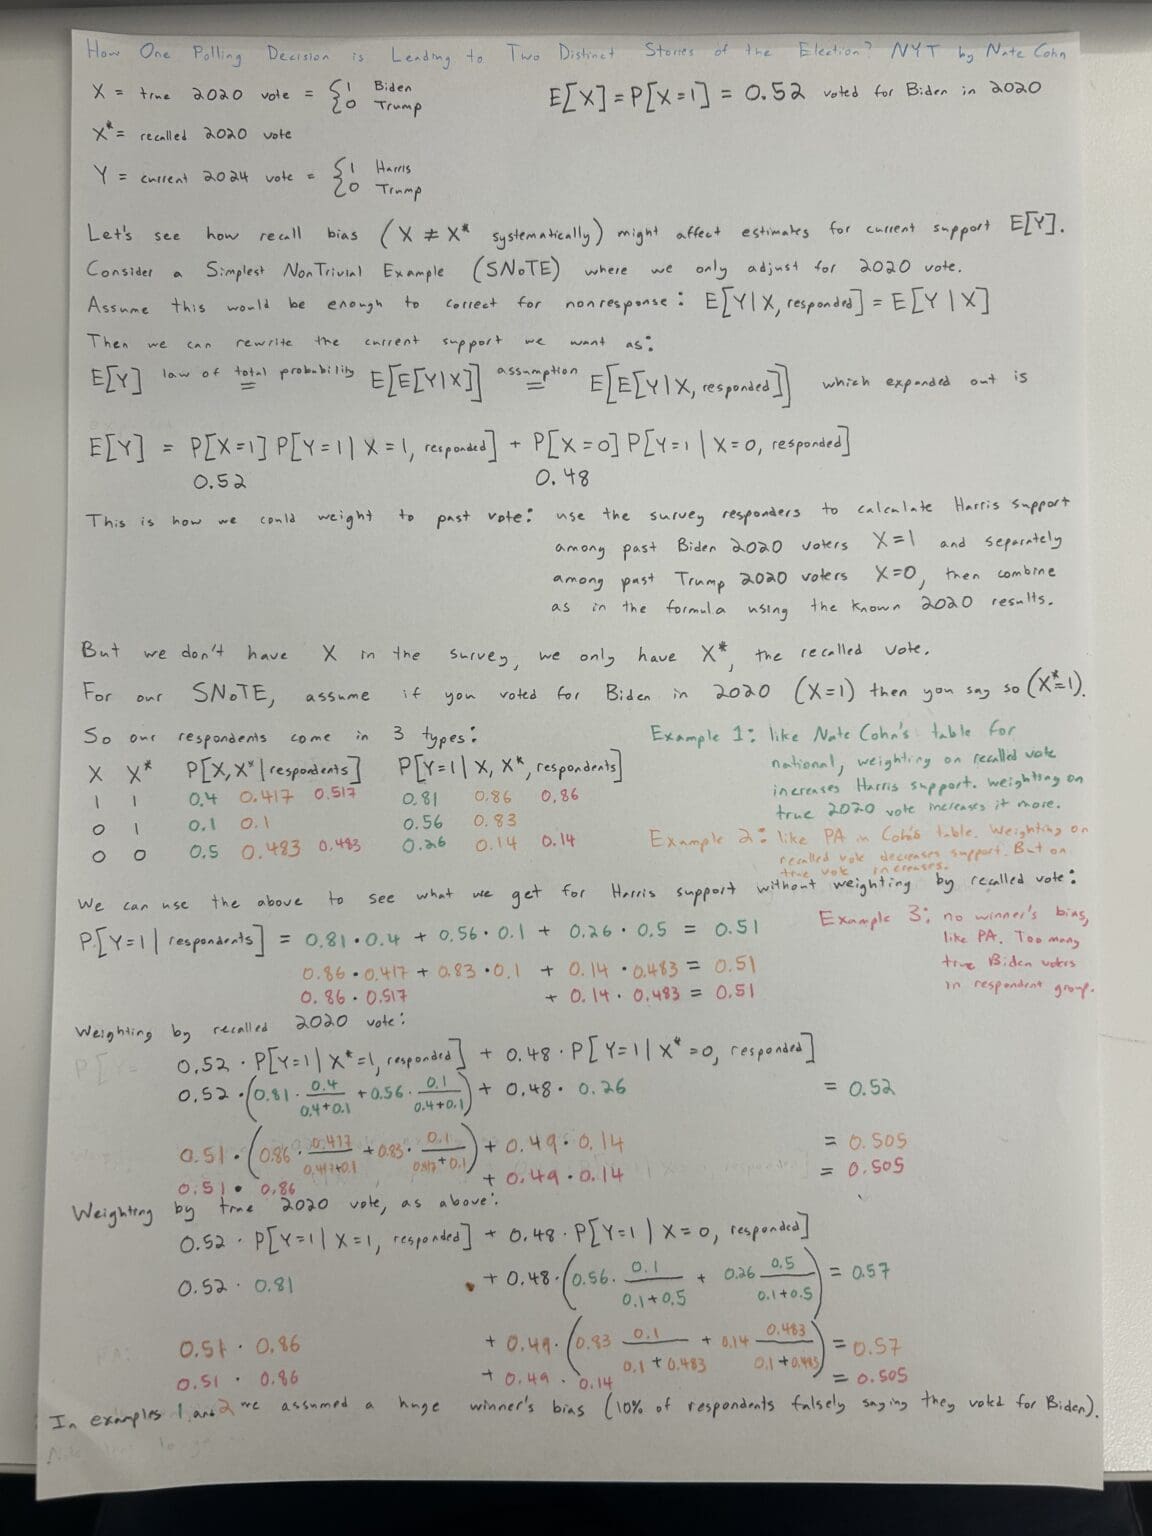 How One Polling Decision is Leading to Two Distinct Stories of the Election? NYT by Nate Cohn
X = true 2020 vote = { 1 Biden
0 Trump
E[X] = P[X=1] = 0.52 voted for Biden in 2020
X* = recalled 2020 vote
Y = current 2024 vote = { 1 Harris
0 Trump
Let's see how recall bias (X ≠ X* systematically) might affect estimates for current support E[Y].
Consider a Simplest NonTrivial Example (SNoTE) where we only adjust for 2020 vote.
Assume this would be enough to correct for nonresponse: E[Y|X, responded] = E[Y|X]
Then we can rewrite the current support we want as:
E[Y] law of total probability = E[E[Y|X]] assumption = E[E[Y|X, responded]] which expanded out is
E[Y] = P[X=1] P[Y=1|X=1, responded] + P[X=0] P[Y=1|X=0, responded]
0.52 0.48
This is how we could weight to past vote: use the survey responders to calculate Harris support
among past Biden 2020 voters X=1 and separately
among past Trump 2020 voters X=0, then combine
as in the formula using the known 2020 results.
But we don't have X in the survey, we only have X*, the recalled vote.
For our SNoTE, assume if you voted for Biden in 2020 (X=1) then you say so (X*=1).
So our respondents come in 3 types:
X X* P[X,X*|respondents] P[Y=1|X, X*, respondents]
1 1 0.4 0.417 0.517 0.81 0.86 0.86
0 1 0.1 0.1 0.56 0.83
0 0 0.5 0.483 0.483 0.26 0.14 0.14
Example 1: like Nate Cohn's table for
national, weighting on recalled vote
increases Harris support. weighting on
true 2020 vote increases it more.
Example 2: like PA in Cohn's table. Weighting on
recalled vote decreases support. But on
true vote increases.
We can use the above to see what we get for Harris support without weighting by recalled vote:
P[Y=1|respondents] = 0.81·0.4 + 0.56·0.1 + 0.26·0.5 = 0.51
0.86·0.417 + 0.83·0.1 + 0.14·0.483 = 0.51
0.86·0.517 + 0.14·0.483 = 0.51
Example 3: no winner's bias,
like PA. Too many
true Biden voters
in respondent group.
Weighting by recalled 2020 vote:
0.52·P[Y=1|X*=1, responded] + 0.48·P[Y=1|X*=0, responded]
0.52·(0.81·0.4/(0.4+0.1) + 0.56·0.1/(0.4+0.1)) + 0.48·0.26 = 0.52
0.51·(0.86·0.417/(0.417+0.1) + 0.83·0.1/(0.417+0.1)) + 0.49·0.14 = 0.505
0.51·0.86 + 0.49·0.14 = 0.505
Weighting by true 2020 vote, as above:
0.52·P[Y=1|X=1, responded] + 0.48·P[Y=1|X=0, responded]
0.52·0.81 + 0.48·(0.56·0.1/(0.1+0.5) + 0.26 0.5/(0.1+0.5)) = 0.57
0.51·0.86 + 0.49·(0.83 0.1/(0.1+0.483) + 0.14 0.483/(0.1+0.483)) = 0.57
0.51·0.86 + 0.49·0.14 = 0.505
In examples 1 and 2 we assumed a huge winner's bias (10% of respondents falsely saying they voted for Biden).